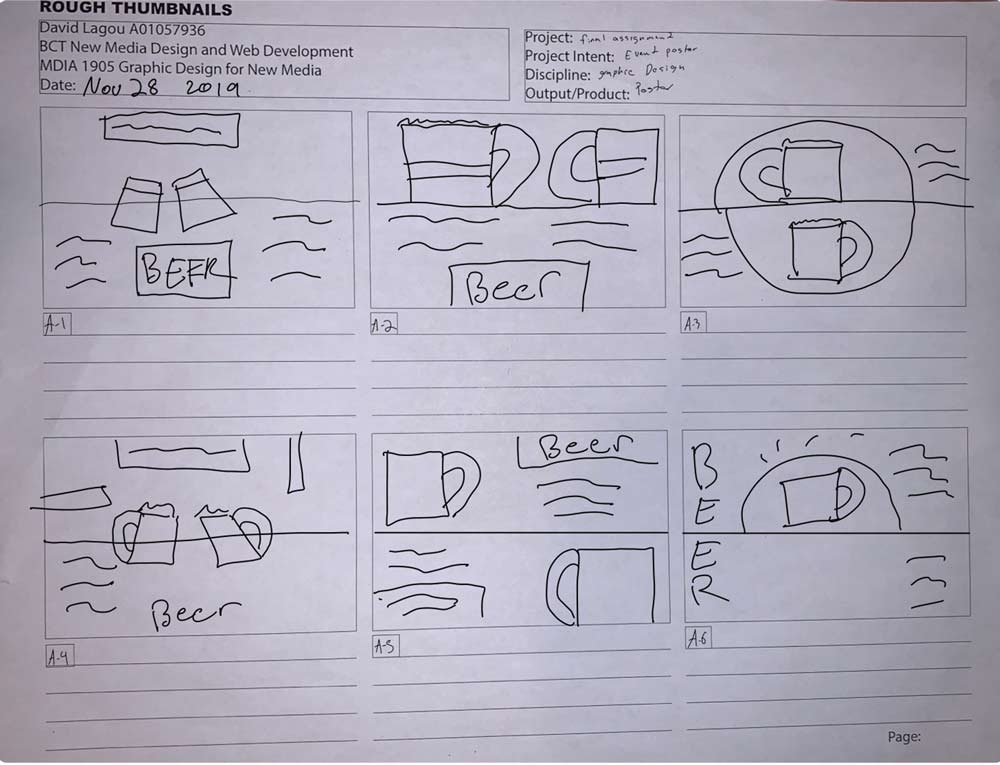 ROUGH THUMBNAILS
David Lagou A01057936
BCT New Media Design and Web Development
MDIA 1905 Graphic Design for New Media
Date: Nov 28 2019
Project: final assignment
Project Intent: Event poster
Discipline: graphic Design
Output/Product: Poster
BEER
Beer
A-1
A-2
A-3
Beer
Beer
B
E
E
R
A-4
A-5
A-6
Page: